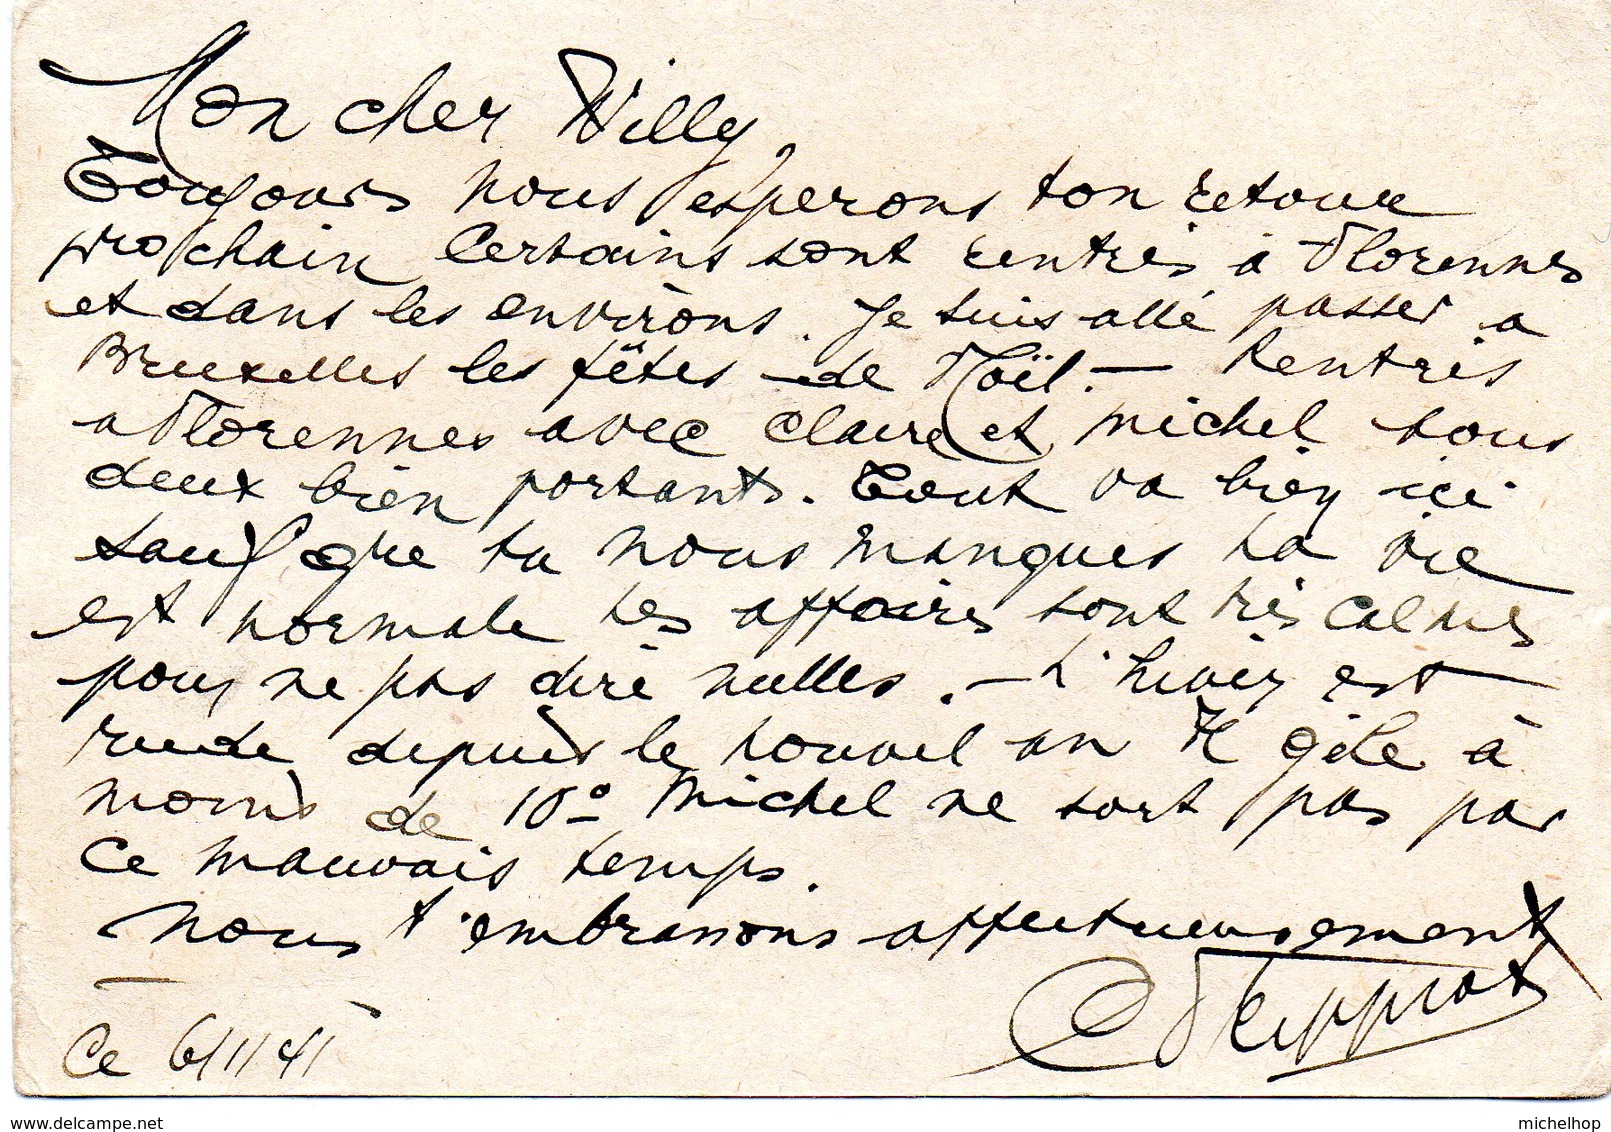 Mon cher Willy,
Toujours nous esperons ton retour
prochain Certains sont rentrés à Florennes
et dans les environs. Je suis allé passer a
Bruxelles les fêtes de Noël. — Rentrés
a Florennes avec Claire et Michel tous
deux bien portants. Tout va bien ici
sauf que tu nous manques La vie
est normale Les affaires sont très calmes
pour ne pas dire nulles. — L'hiver est
rude depuis le nouvel an Il gèle à
moins de 10° Michel ne sort pas par
ce mauvais temps.
Nous t'embrassons affectueusement
Ce 6/1/41
delcampe.net
michelhop